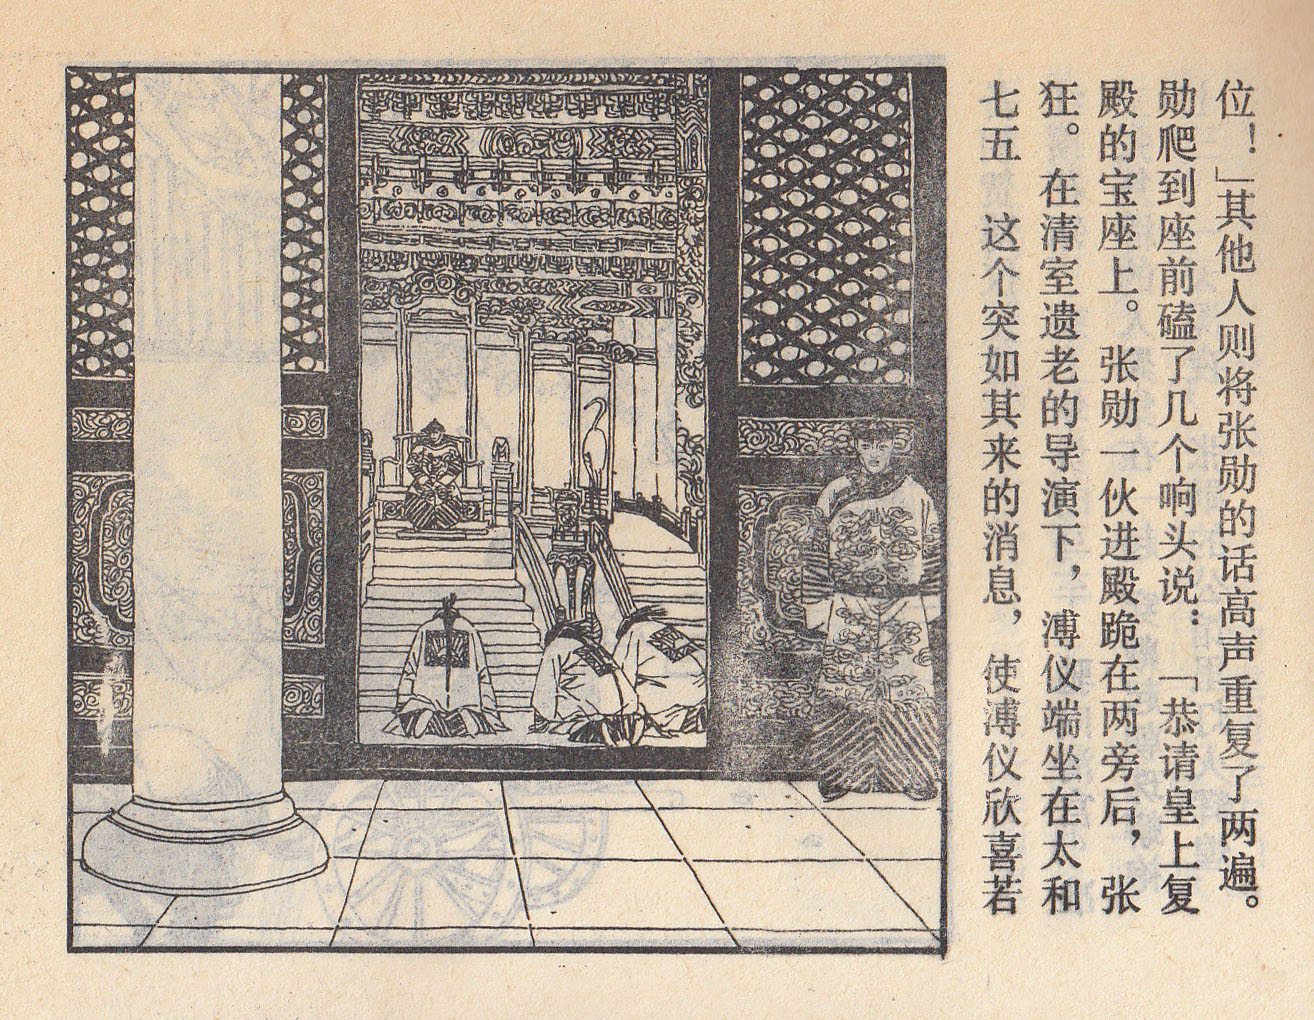 七五 这个突如其来的消息，使溥仪欣喜若
狂。在清室遗老的导演下，溥仪端坐在太和
殿的宝座上。张勋一伙进殿跪在两旁后，张
勋爬到座前磕了几个响头说：「恭请皇上复
位！」其他人则将张勋的话高声重复了两遍。